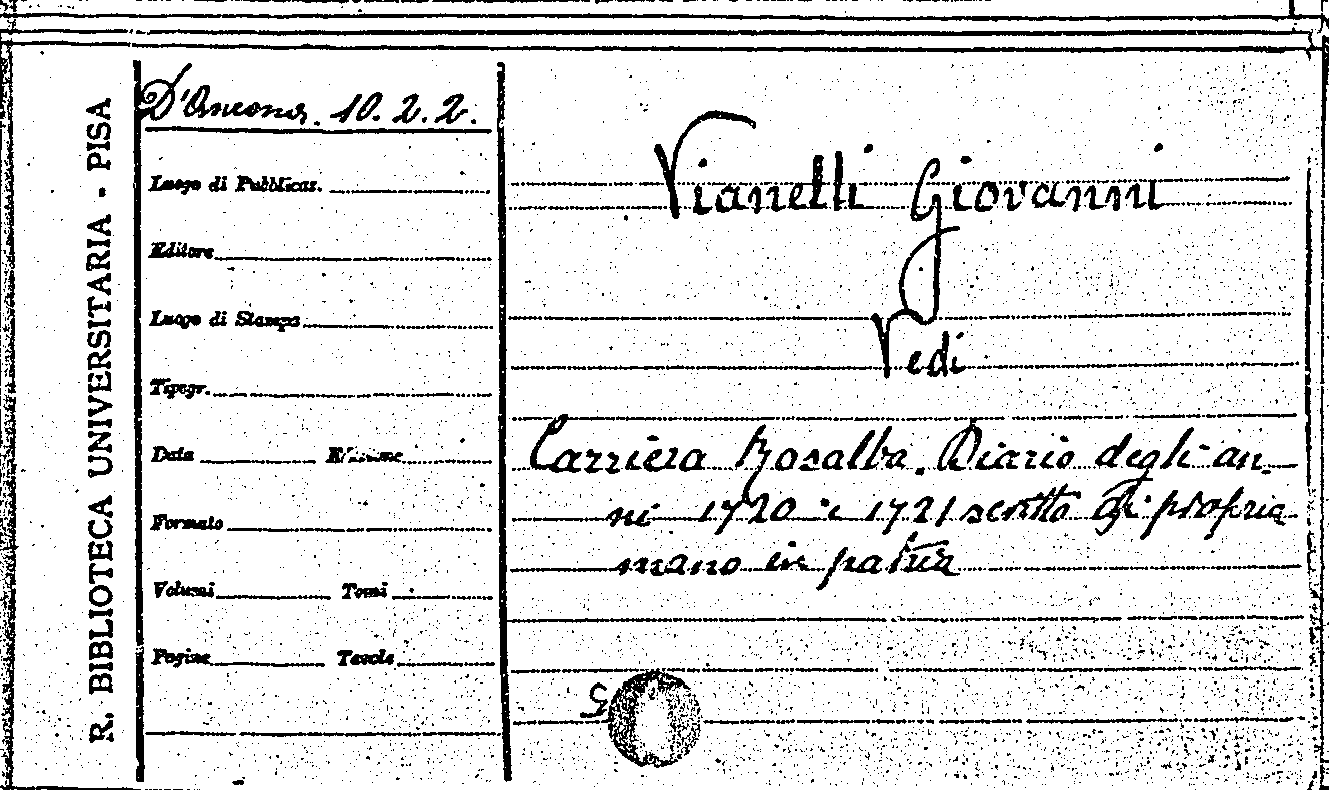 R. BIBLIOTECA UNIVERSITARIA - PISA
D'Ancona. 10. 2. 2.
Luogo di Pubblicaz.
Editore
Luogo di Stampa
Tipogr.
Data Edizione
Formato
Volumi Tomi
Pagine Tavole
Vianelli Giovanni
Vedi
Carriera Rosalba. Diario degli an-
ni 1720 e 1721 scritto di propria
mano in patria